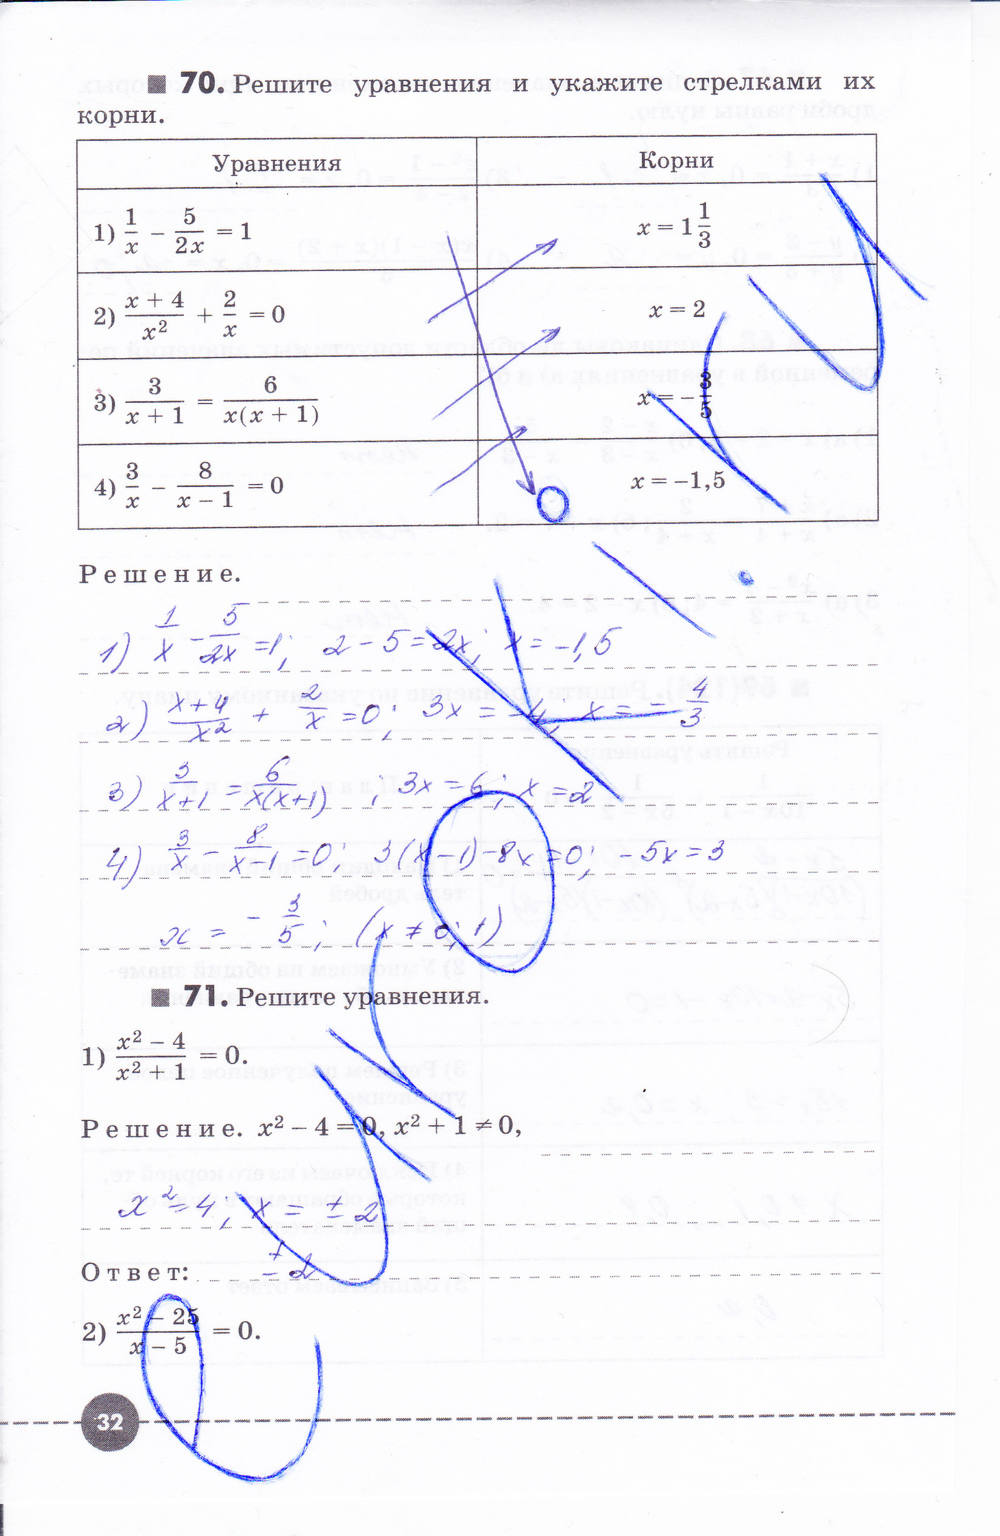 70. Решите уравнения и укажите стрелками их
корни.
Уравнения Корни
1) 1/x − 5/2x = 1 x = 1 1/3
2) x + 4/x² + 2/x = 0 x = 2
3) 3/x + 1 = 6/x(x + 1) x = −3/5
4) 3/x − 8/x − 1 = 0 x = −1,5
Решение.
1) 1/x − 5/2x = 1; 2 − 5 = 2x; x = −1,5
2) x+4/x² + 2/x = 0; 3x = −4; x = −4/3
3) 3/x+1 = 6/x(x+1); 3x = 6; x = 2
4) 3/x − 8/x−1 = 0; 3(x−1)−8x = 0; −5x = 3
x = −3/5; (x ≠ 0; 1)
71. Решите уравнения.
1) x² − 4/x² + 1 = 0.
Решение. x² − 4 = 0, x² + 1 ≠ 0,
x² = 4; x = ±2
Ответ: ±2
2) x² − 25/x − 5 = 0.
32